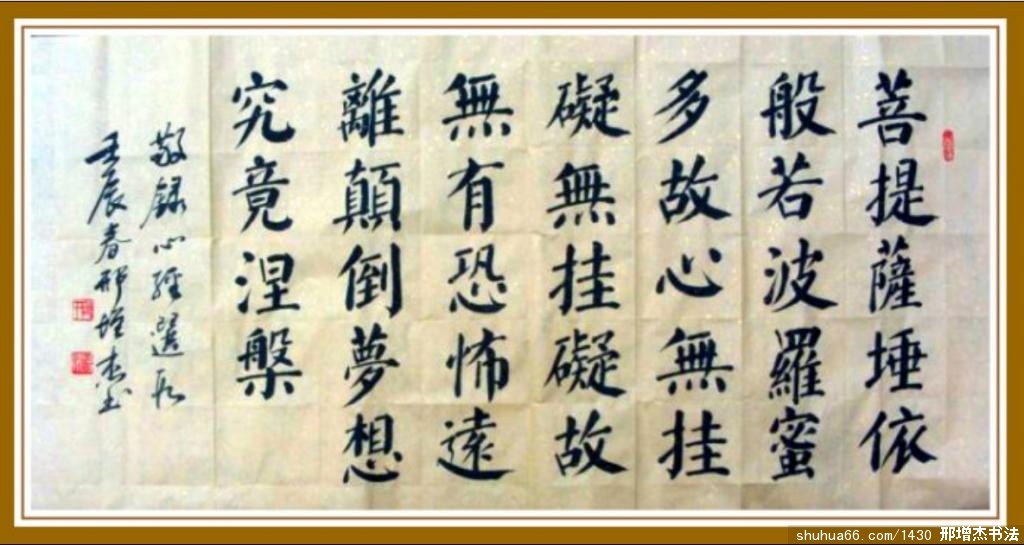 菩提薩埵依
般若波羅蜜
多故心無挂
礙無挂礙故
無有恐怖遠
離顛倒夢想
究竟涅槃
敬録心經選句
壬辰春邢增杰書
shuhua66.com/1430 邢增杰书法